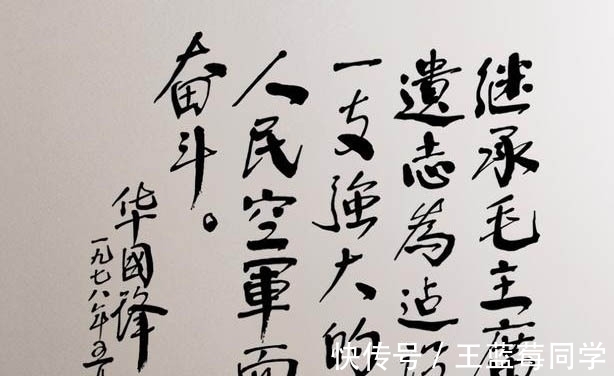 继承毛主席
遺志為迠设
一支強大的
人民空軍而
奋斗。
华國锋
一九七八年五月
快传号 / 王蓝莓同学